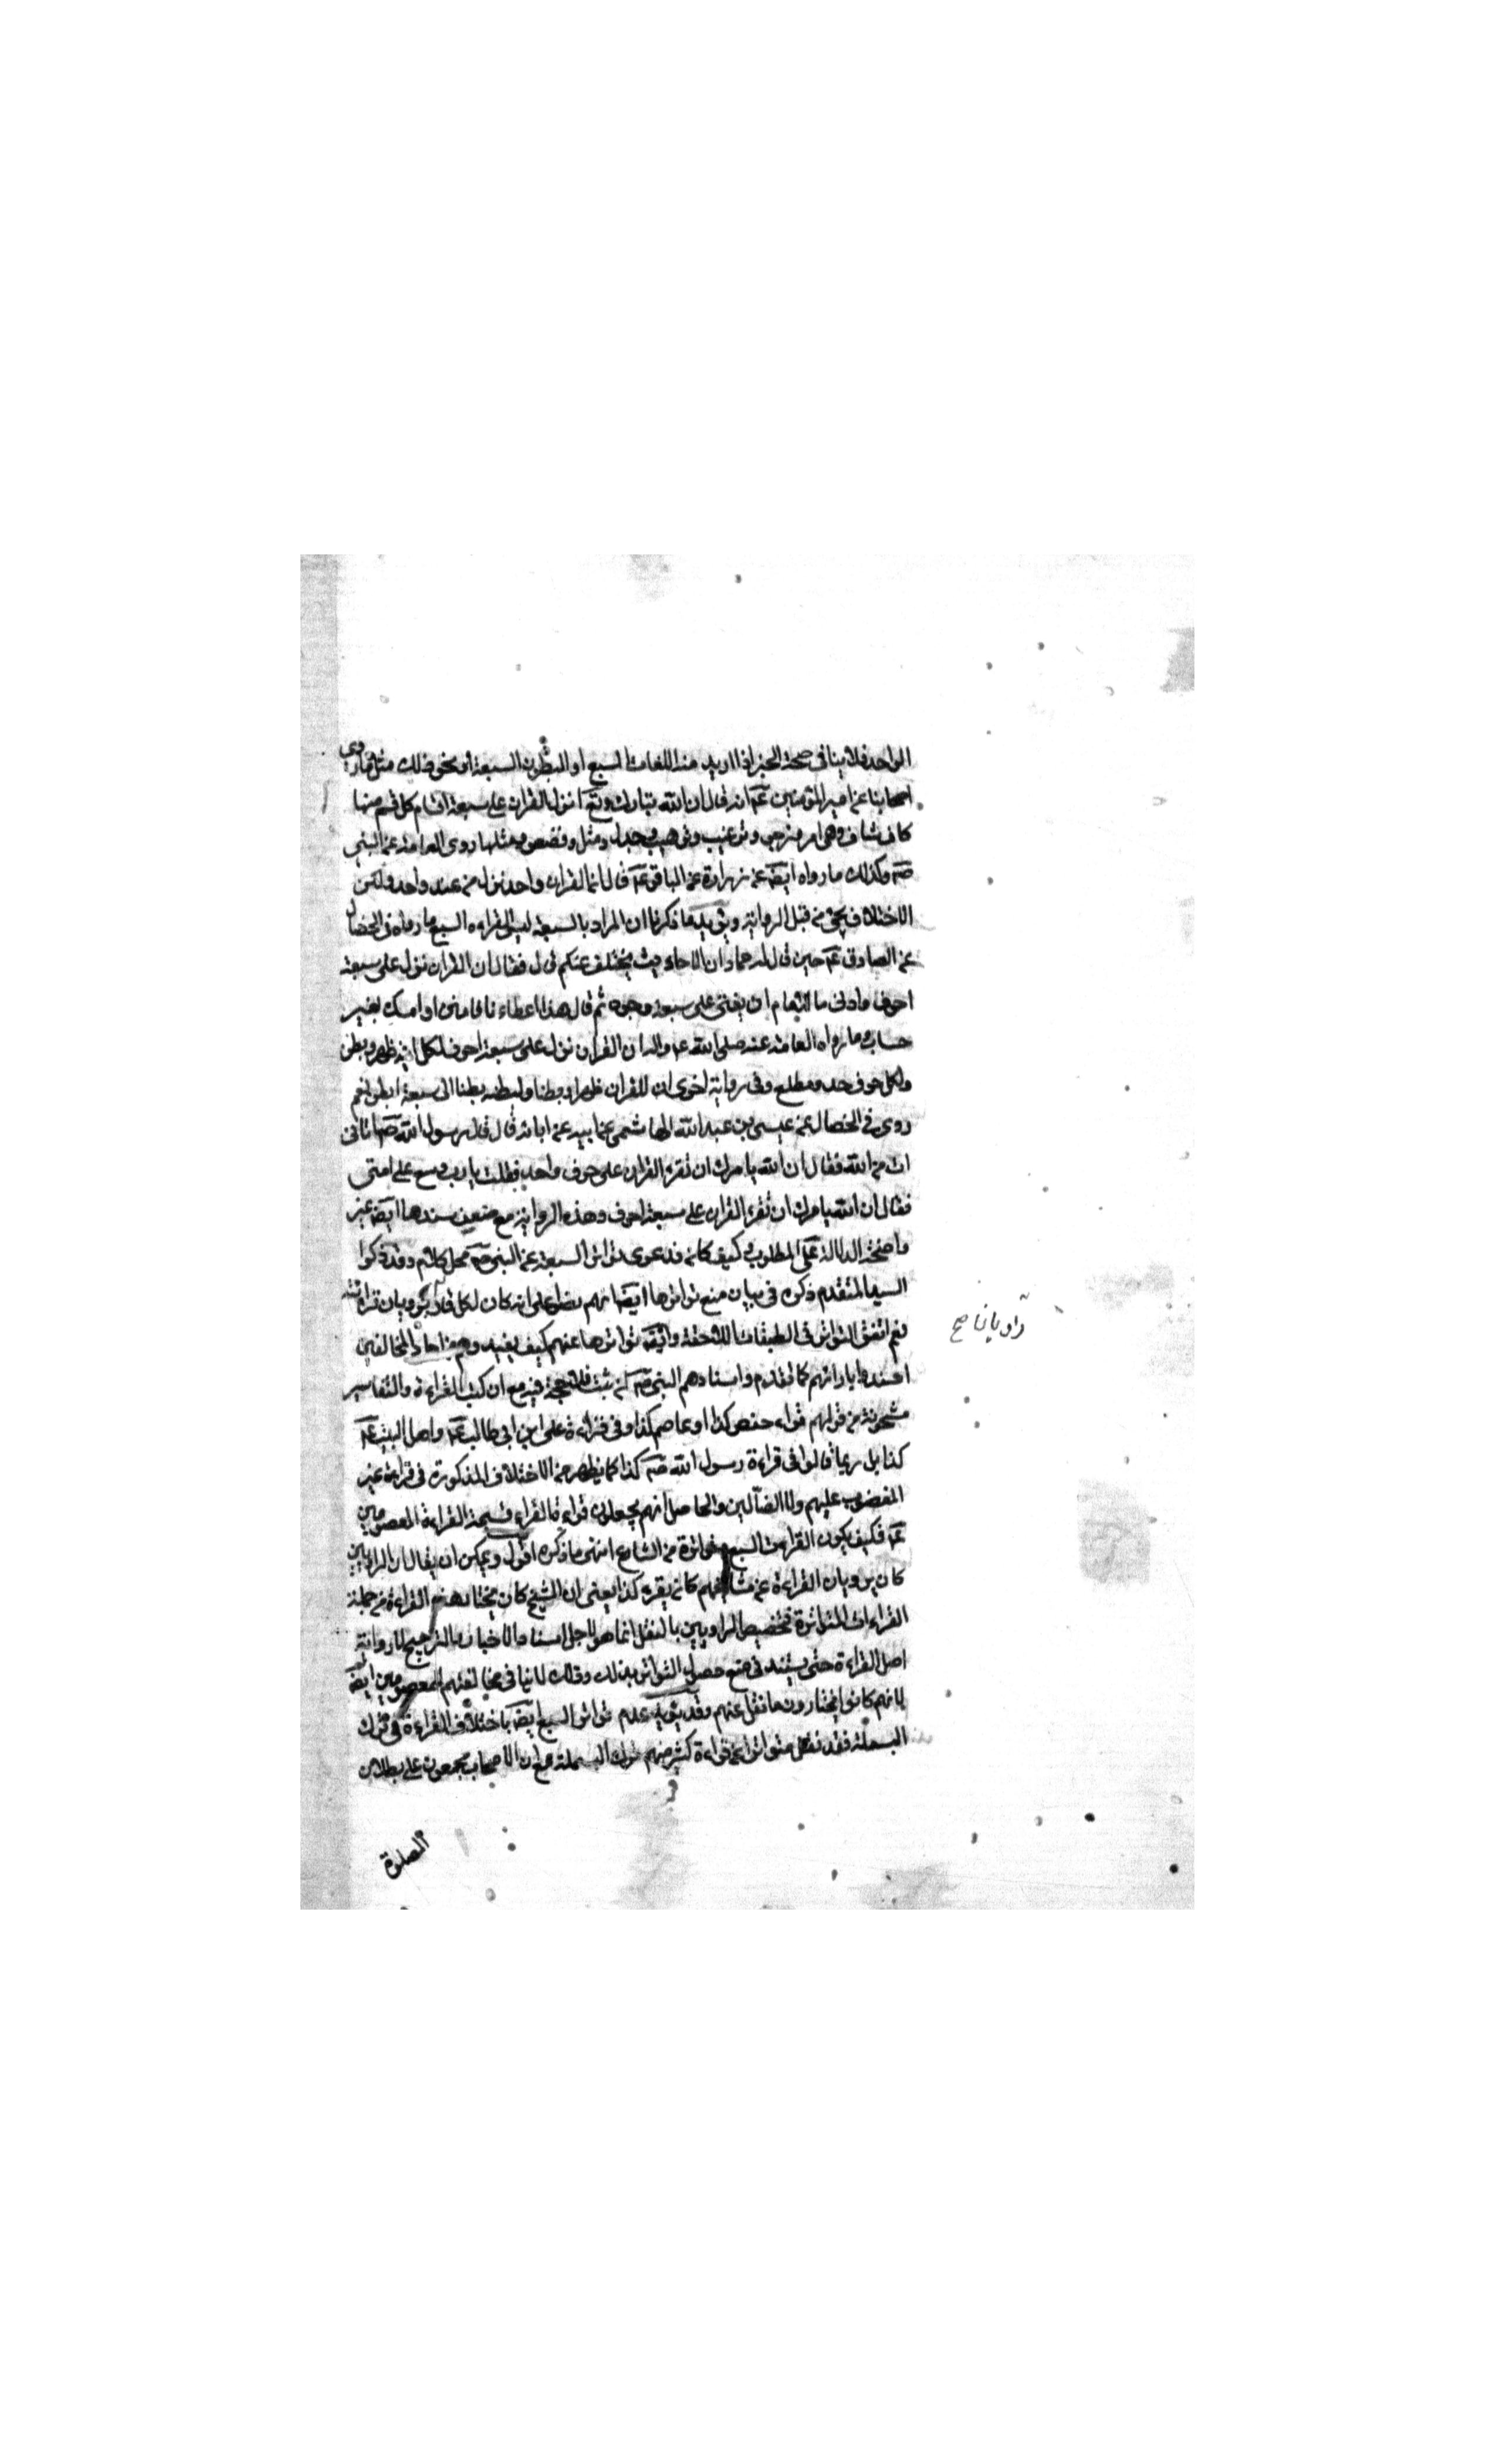 الواحد فلا ينافي صحة الخبر اذا اريد منه اللغات السبع او البطون السبعة او نحو ذلك مثل ما روي
اصحابنا عن امير المؤمنين عم انه قال ان الله تبارك وتع انزل القران على سبعة اقسام كل قسم منها
كاف شاف وهي امر وزجر وترغيب وترهيب وجدل ومثل وقصص ومثلها روى العامة عن النبي
صم وكذلك ما رواه ايض عن زرارة عن الباقر عم قال انما القران واحد نزل من عند واحد ولكن
الاختلاف يجئ من قبل الرواية ويؤيد ما ذكرنا ان المراد بالسبعة ليس القراءة السبع ما رواه في الخصال
عن الصادق عم حين قال له حماد ان الاحاديث يختلف عنكم قال فقال ان القران نزل على سبعة
احرف وادنى ما للامام ان يفتي على سبعة وجوه ثم قال هذا عطاءنا فامنن او امسك بغير
حساب وما رواه العامة عنه صلى الله عم واله ان القران نزل على سبعة احرف لكل اية ظهر وبطن
ولكل حرف حد ومطلع وفي رواية اخرى ان للقران ظهرا وبطنا ولبطنه بطنا الى سبعة ابطن نعم
روى في الخصال عن عيسى بن عبد الله الهاشمي عن ابيه عن ابائه قال قال رسول الله صم اتاني
ات من الله فقال ان الله يامرك ان تقرء القران على حرف واحد فقلت يا رب وسع على امتي
فقال ان الله يامرك ان تقرء القران على سبعة احرف وهذه الرواية مع ضعف سندها ايض غير
واضحة الدلالة على المطلوب وكيف كان فدعوى تواتر السبعة عن النبي صم محل كلام وقد ذكروا
السيد المتقدم ذكره في بيان منع تواترها ايض انهم نصوا على انه كان لكل قار يرويان قرائته
نعم اتفق التواتر في الطبقات اللاحقة وايض تواترها عنهم كيف يفيد وهم من احاد المخالفين
استندوا بارائهم كما تقدم واسنادهم النبي صم لم يثبت فلا حجة فيه مع ان كتب القراءة والتفاسير
مشحونة من قولهم قراء حفص كذا او عاصم كذا وفي قراءة على ابن ابي طالب عم واهل البيت عم
كذا بل ربما قالوا في قراءة رسول الله صم كذا كما يظهر من الاختلاف المذكورة في قراءة غير
المغضوب عليهم ولا الضالين والحاصل انهم يجعلون قراءة القراء قسيمة القراءة المعصومين
عم فكيف يكون القراءت السبع متواترة من الشارع انتهى ما ذكره اقول ويمكن ان يقال ان الراويين
كان يرويان القراءة عن مشايخهم كانه يقرء كذا يعني ان الشيخ كان مختار هذه القراءة من جملة
القراءات المتواترة فتخصيص الراويين بالنقل انما هو لاجل استناد الاختيار والترجيح لا رواية
اصل القراءة حتى يستند في منع حصول التواتر بذلك وذلك لا ينافي مخالفتهم المعصومين ايض
لانهم كانوا يختارون ما نقل عنهم وقد يؤيد عدم تواتر السبع ايض باختلاف القراءة في ترك
البسملة فقد نقل متواترا عن قراءة كثير منهم ترك البسملة مع ان الاصحاب مجمعون على بطلان
راويانا صح
الصلوة